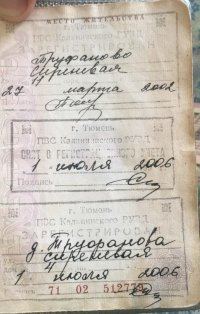 МЕСТО ЖИТЕЛЬСТВА
г. Тюмень
ПВС Калининского РУВД
ЗАРЕГИСТРИРОВАН
Труфаново
Сиреневая
4
27 марта 2002
г. Тюмень
ПВС Калининского РУВД
СНЯТ С РЕГИСТРАЦИОННОГО УЧЕТА
1 июля 2006
Подпись
г. Тюмень
ПВС Калининского РУВД
ЗАРЕГИСТРИРОВАН
д. Труфанова
сиреневая
4
1 июля 2006
71 02